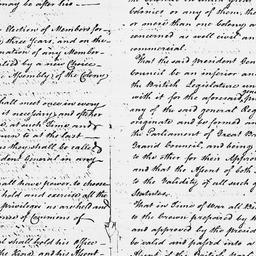 may be after his
Election of Members for
three years, and on the
nation of any Member
plied by a new Choice
Assembly of the Colony
shall meet once in every
it necessary and of other
at such time and
to at the last
as they shall be called
dent General in any
shall have power to choose
hold and exercise all the
privileges as are held and
House of Commons of
shall hold his Office
the King and his Assent
Colonies or any of them, th
or more than one Colony a
concerned as well civil an
commercial.
That the said President Gen
Council be an inferior and
the British Legislature un
with it for the aforesaid
any of the said general Reg
originate and be formed and
the Parliament of Great B
Grand Council, and being
to the other for their Appro
and that the Assent of both
to the Validity of all such g
Statutes.
That in Time of War all Bil
to the Crown prepared by th
and approved by the presid
be valid and passed into a